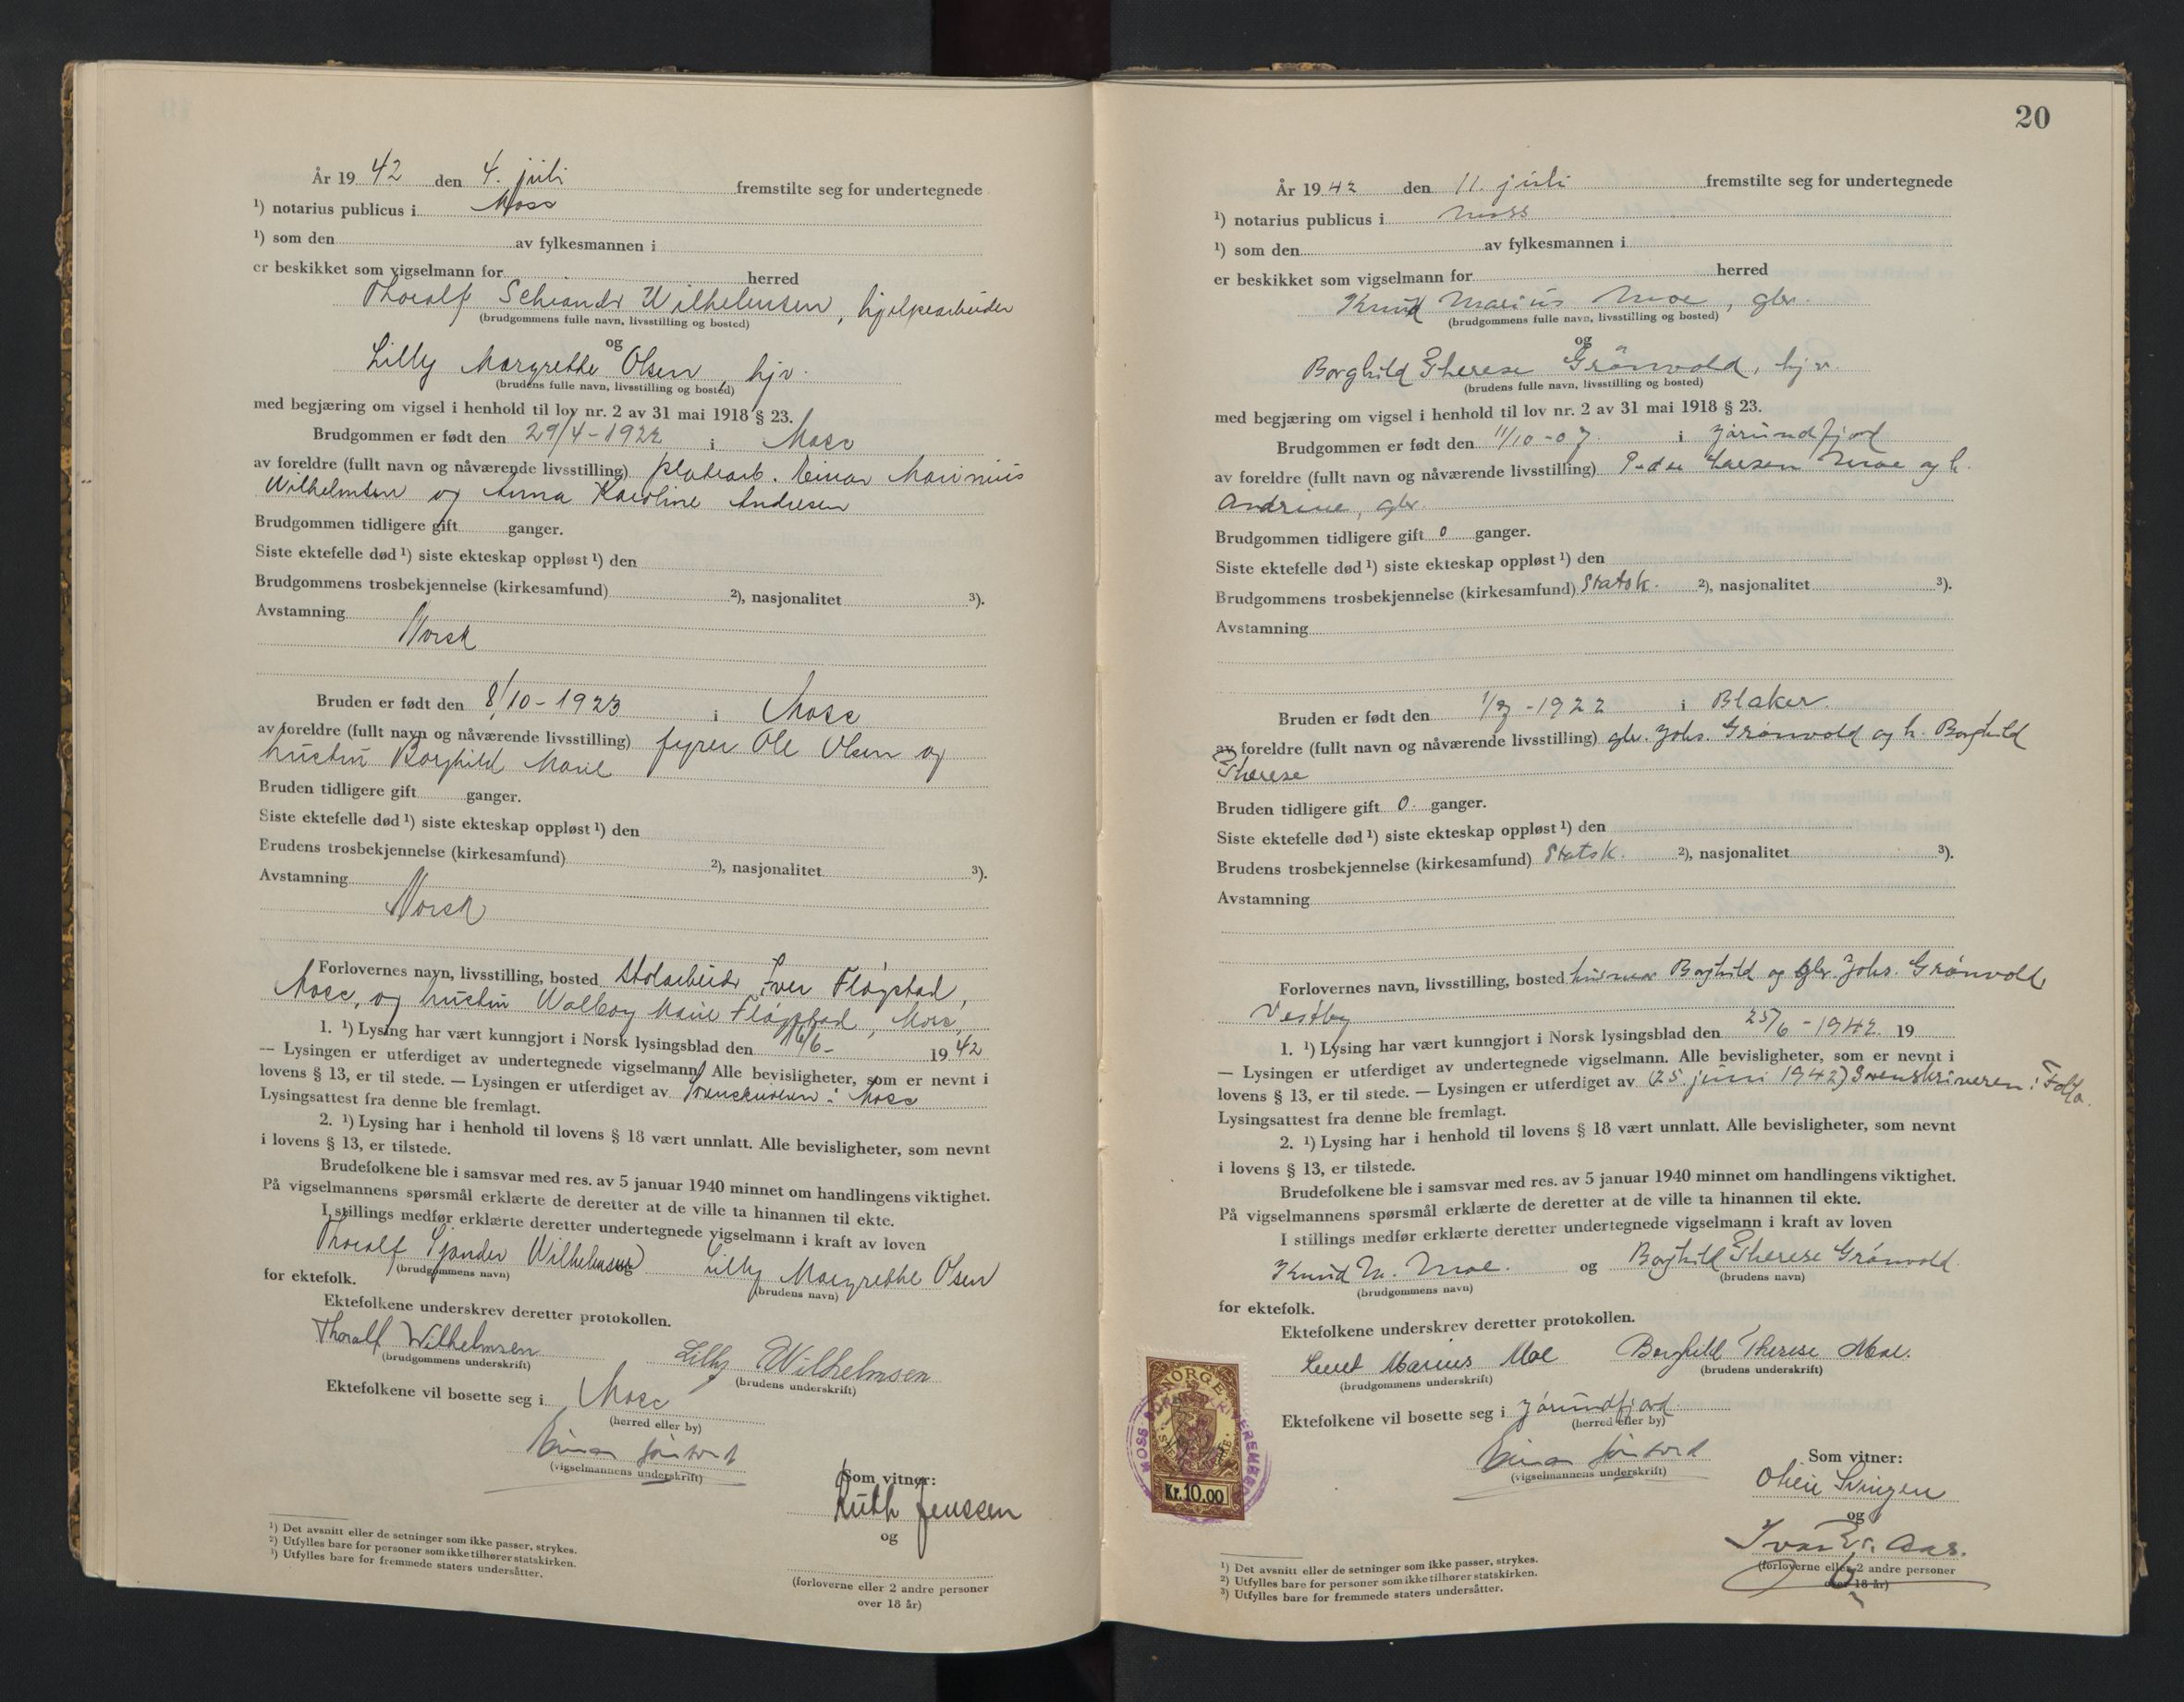 År 19 42 den 4. juli fremstilte seg for undertegnede
¹) notarius publicus i Moss
¹) som den av fylkesmannen i
er beskikket som vigselmann for herred
Thoralf Wilhelmsen, hjelpearbeider
(brudgommens fulle navn, livsstilling og bosted)
og
Lilly Margrethe Olsen, hjv.
(brudens fulle navn, livsstilling og bosted)
med begjæring om vigsel i henhold til lov nr. 2 av 31 mai 1918 § 23.
Brudgommen er født den 29/4-1922 i Moss
av foreldre (fullt navn og nåværende livsstilling) platearb. Einar Marinius
Wilhelmsen og Anna Karoline Andresen
Brudgommen tidligere gift ganger.
Siste ektefelle død ¹) siste ekteskap oppløst ¹) den
Brudgommens trosbekjennelse (kirkesamfund) ²), nasjonalitet ³).
Avstamning
Norsk
Bruden er født den 8/10-1923 i Moss
av foreldre (fullt navn og nåværende livsstilling) fyrer Ole Olsen og
hustru Borghild Marie
Bruden tidligere gift ganger.
Siste ektefelle død ¹) siste ekteskap oppløst ¹) den
Brudens trosbekjennelse (kirkesamfund) ²), nasjonalitet ³).
Avstamning
Norsk
Forlovernes navn, livsstilling, bosted Iver Fløgstad,
Moss, og hustru Walborg Marie Fløgstad, Moss,
1. ¹) Lysing har vært kunngjort i Norsk lysingsblad den 16/6- 19 42
— Lysingen er utferdiget av undertegnede vigselmann. Alle bevisligheter, som er nevnt i
lovens § 13, er til stede. — Lysingen er utferdiget av Sorenskriveren i Moss
Lysingsattest fra denne ble fremlagt.
2. ¹) Lysing har i henhold til lovens § 18 vært unnlatt. Alle bevisligheter, som nevnt
i lovens § 13, er tilstede.
Brudefolkene ble i samsvar med res. av 5 januar 1940 minnet om handlingens viktighet.
På vigselmannens spørsmål erklærte de deretter at de ville ta hinannen til ekte.
I stillings medfør erklærte deretter undertegnede vigselmann i kraft av loven
Thoralf Sjander Wilhelmsen og Lilly Margrethe Olsen
(brudgommens navn) (brudens navn)
for ektefolk.
Ektefolkene underskrev deretter protokollen.
Thoralf Wilhelmsen Lilly Wilhelmsen
(brudgommens underskrift) (brudens underskrift)
Ektefolkene vil bosette seg i Moss
(herred eller by)
Einar
(vigselmannens underskrift)
Som vitner:
Ruth Jenssen
og
(forloverne eller 2 andre personer
over 18 år)
¹) Det avsnitt eller de setninger som ikke passer, strykes.
²) Utfylles bare for personer som ikke tilhører statskirken.
³) Utfylles bare for fremmede staters undersåtter.
20
År 19 42 den 11. juli fremstilte seg for undertegnede
¹) notarius publicus i Moss
¹) som den av fylkesmannen i
er beskikket som vigselmann for herred
Knud Marius Moe, gbr.
(brudgommens fulle navn, livsstilling og bosted)
og
Borghild Therese Grønvold, hjv.
(brudens fulle navn, livsstilling og bosted)
med begjæring om vigsel i henhold til lov nr. 2 av 31 mai 1918 § 23.
Brudgommen er født den 11/10-07. i Jørundfjord
av foreldre (fullt navn og nåværende livsstilling) Peder Larsen Moe og h.
Andrine, gbr.
Brudgommen tidligere gift 0 ganger.
Siste ektefelle død ¹) siste ekteskap oppløst ¹) den
Brudgommens trosbekjennelse (kirkesamfund) Statsk. ²), nasjonalitet ³).
Avstamning
Bruden er født den -1922 i Blaker.
av foreldre (fullt navn og nåværende livsstilling) gbr. Johs. Grønvold og h. Borghild
Therese
Bruden tidligere gift 0. ganger.
Siste ektefelle død ¹) siste ekteskap oppløst ¹) den
Brudens trosbekjennelse (kirkesamfund) Statsk. ²), nasjonalitet ³).
Avstamning
Forlovernes navn, livsstilling, bosted Borghild og gbr. Johs. Grønvold,
Vestby
1. ¹) Lysing har vært kunngjort i Norsk lysingsblad den 25/6-1942. 19
— Lysingen er utferdiget av undertegnede vigselmann. Alle bevisligheter, som er nevnt i
lovens § 13, er til stede. — Lysingen er utferdiget av (25. juni 1942) Sorenskriveren i Follo.
Lysingsattest fra denne ble fremlagt.
2. ¹) Lysing har i henhold til lovens § 18 vært unnlatt. Alle bevisligheter, som nevnt
i lovens § 13, er tilstede.
Brudefolkene ble i samsvar med res. av 5 januar 1940 minnet om handlingens viktighet.
På vigselmannens spørsmål erklærte de deretter at de ville ta hinannen til ekte.
I stillings medfør erklærte deretter undertegnede vigselmann i kraft av loven
Knud M. Moe. og Borghild Therese Grønvold
(brudgommens navn) (brudens navn)
for ektefolk.
Ektefolkene underskrev deretter protokollen.
Marius Moe Borghild Therese Moe.
(brudgommens underskrift) (brudens underskrift)
Ektefolkene vil bosette seg i Jørundfjord.
(herred eller by)
Einar
(vigselmannens underskrift)
Som vitner:
Svingen
og
Ivar Er. Aas.
(forloverne eller 2 andre personer
over 18 år)
NORGE
Kr. 10.00
¹) Det avsnitt eller de setninger som ikke passer, strykes.
²) Utfylles bare for personer som ikke tilhører statskirken.
³) Utfylles bare for fremmede staters undersåtter.